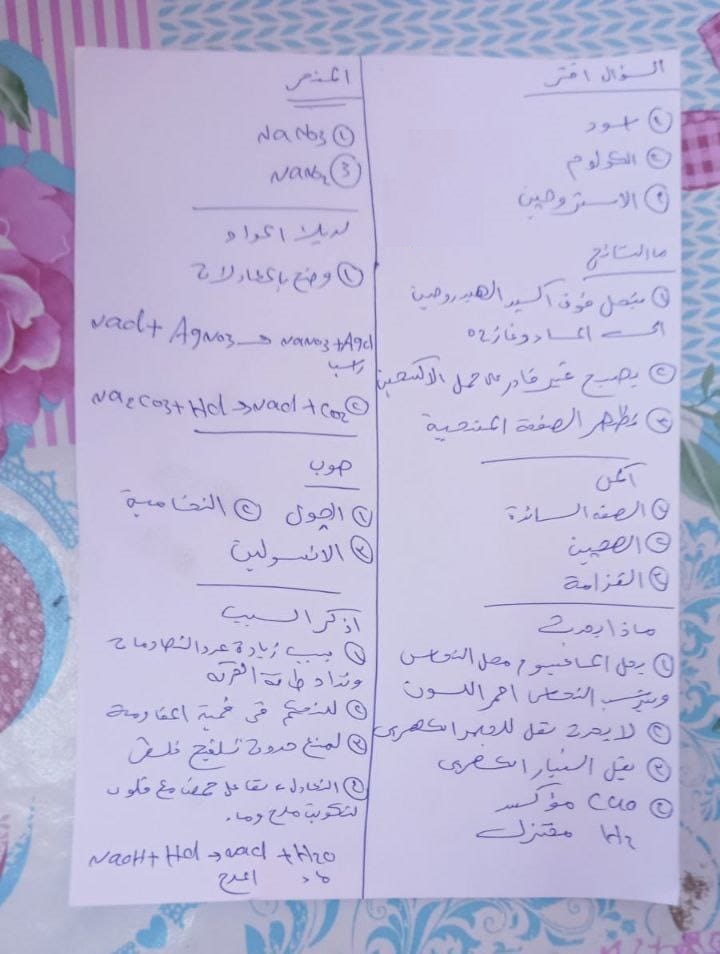 السؤال اختر
① اسود
② الكولوم
③ الاستروجين
ما النتائج
① يتحلل فوق اكسيد الهيدروجين
الى الماء وغاز O2
② يصبح غير قادر على حمل الاكسجين
③ تظهر الصفة المتنحية
اكمل
① الصفه السائدة
② الصحيين
③ القزامة
ماذا يحدث
① يحل الماغنسيوم محل النحاس
ويترسب النحاس احمر اللون
② لا يحدث نقل للجهد الكهربى
③ يقل التيار الكهربى
④ CuO مؤكسد
H2 مختزل
NaNo3 ①
NaNo2 ③
① وضح بالمعادلات
Nacl + AgNo3 → NaNo3 + Agcl
راسب
② Na2Co3 + Hcl → Nacl + Co2
صوب
① الجول ② النخامية
③ الانسولين
اذكر السبب
① بسبب زيادة عدد التصادمات
وتزداد طاقة الحركة
② للتحكم فى قيمة المقاومة
③ لمنع حدوث تلقيح خلطى
④ التعادل، تفاعل حمض مع قلوى
لتكوين ملح وماء
NaOH + Hcl → Nacl + H2O
ملح ماء